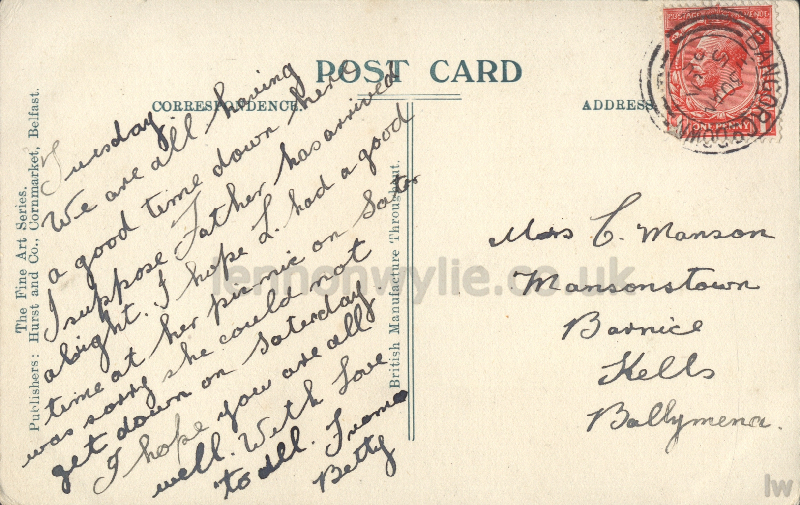 POST CARD
CORRESPONDENCE.
ADDRESS
The Fine Art Series.
Publishers: Hurst and Co., Cornmarket, Belfast.
British Manufacture Throughout.
Tuesday.
We are all having
a good time down here
I suppose Father has arrived
alright. I hope L. had a good
time at her picnic on Satr
was sorry she could not
get down on Saturday
I hope you are all
well. With love
to all. From
Betty
Mrs C. Manson
Mansonstown
Barnice
Kells
Ballymena.
BANGOR
CO. DOWN
ONE PENNY
lennonwylie.co.uk
lw